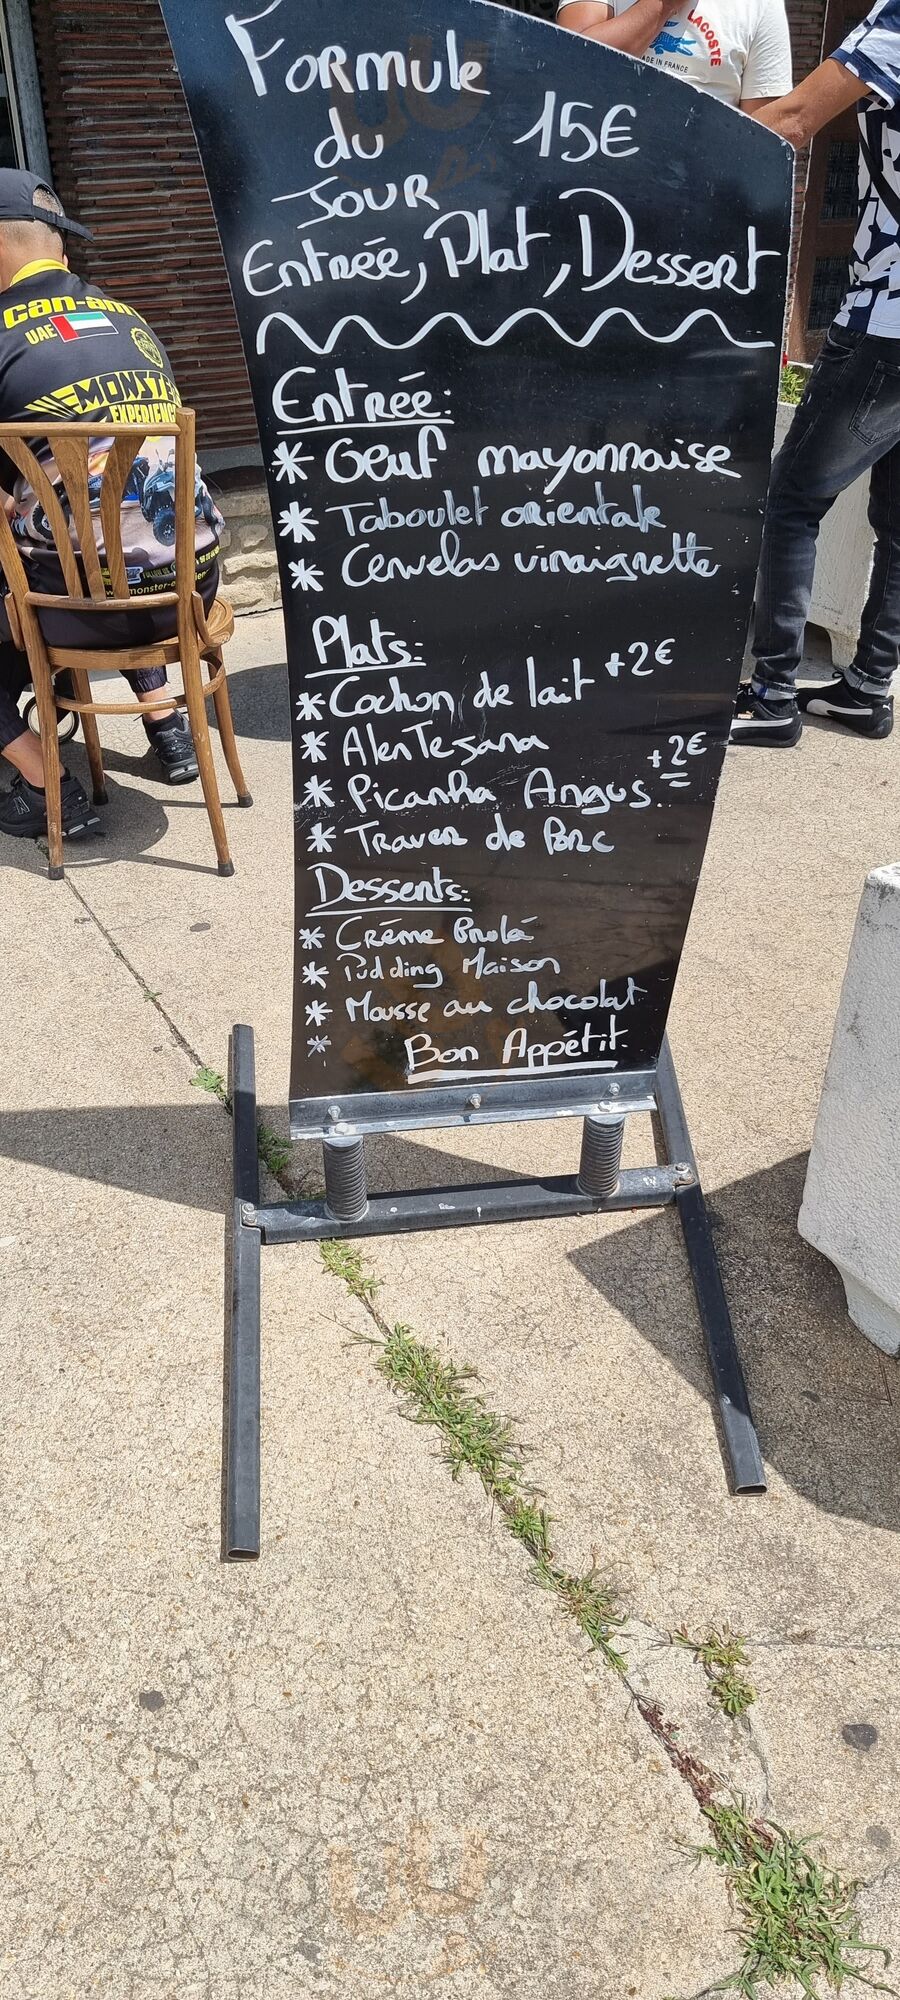 LACOSTE
MADE IN FRANCE
Formule
du 15€
JOUR
Entrée, Plat, Dessert
can-am
UAE
MONSTER
EXPERIENC
Entrée:
* Oeuf mayonnaise
* Taboulet orientale
* Cervelas vinaigrette
Plats:
* Cochon de lait +2€
* AlenTejana
* Picanha Angus. +2€
* Traver de Porc
Desserts:
* Créme Brulá
* Pudding Maison
* Mousse au chocolat
* Bon Appétit.